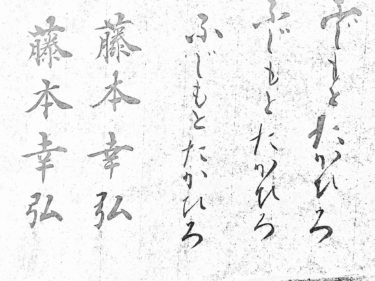 ふじもとたかひろ
ふじもとたかひろ
ふじもとたかひろ
藤本幸弘
藤本幸弘